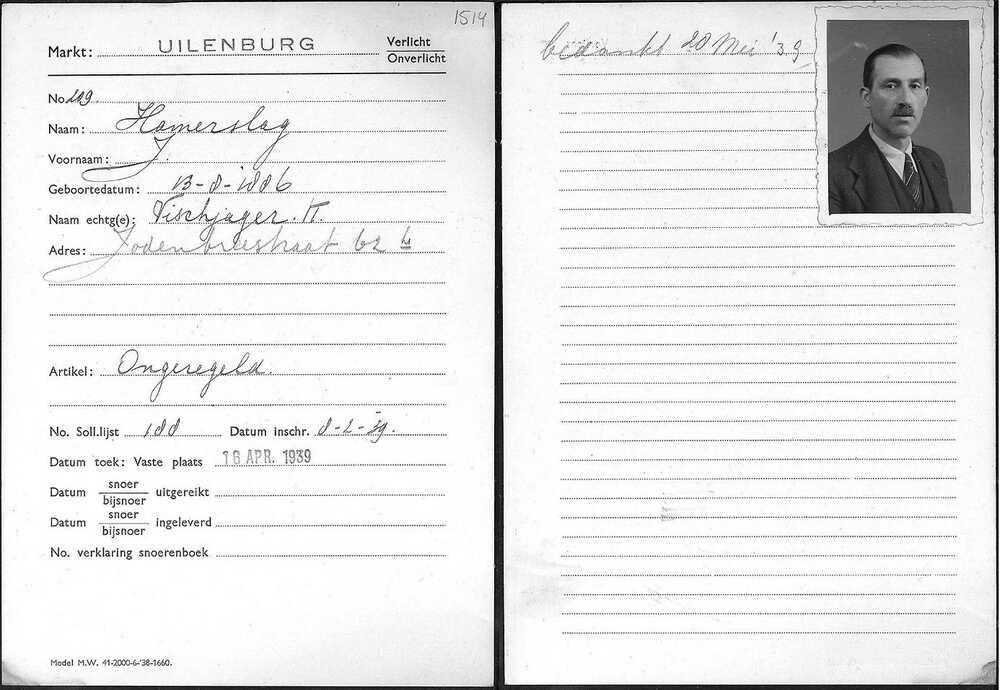 1514
Markt: UILENBURG Verlicht
Onverlicht
No. 209.
Naam: Hamerslag
Voornaam: J.
Geboortedatum: 13-8-1886
Naam echtg(e): Vischjager. K.
Adres: Jodenbreestraat 62
Artikel: Ongeregeld.
No. Soll.lijst 188 Datum inschr. 8-2-39.
Datum toek: Vaste plaats 16 APR. 1939
Datum snoer
bijsnoer uitgereikt
Datum snoer
bijsnoer ingeleverd
No. verklaring snoerenboek
Model M.W. 41-2000-6-'38-1660.
bedankt 20 Mei '39